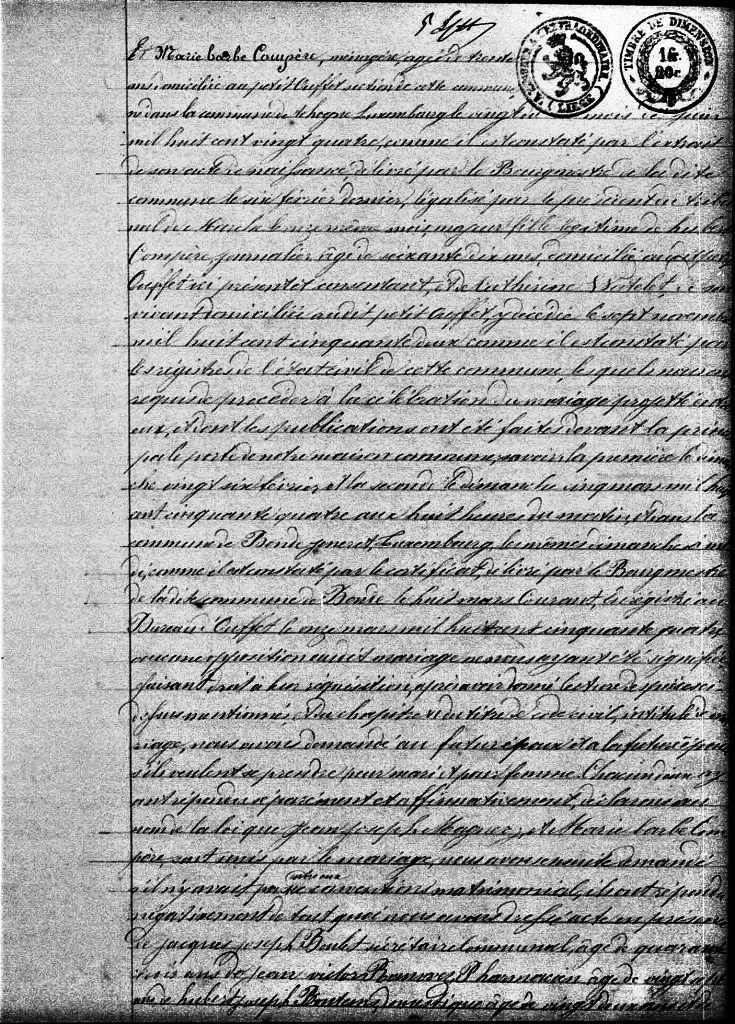 Et Marie barbe Compère, ménagère, agée de trente
ans domiciliée au petit Ouffet section de cette commune,
née dans la commune de tohogne Luxembourg le vingt mois
mil huit cent vingt quatre, comme il est constaté par l'extrait
de son acte de naissance, délivré par le Bourgmestre de la dite
commune le six février dernier, légalisé par le président du tribu
nal de Marche le onze même mois, majeur fille légitime de hubert
Compère, journalier, âgé de soixante dix ans, domicilié au petit
Ouffet ici présent et consentant, et de Catherine Watelet, de son
vivant domiciliée audit petit Ouffet, y décédée le sept novembre
mil huit cent cinquante deux comme il est constaté par
les régistres de l'état civil de cette commune, les quels nous ont
requis de procéder à la célébration du mariage projetté entre
eux, et dont les publications ont été faites devant la prin
pale porte de notre maison commune, savoir: la première le diman
che vingt six février, et la seconde le dimanche cinq mars mil huit
cent cinquante quatre aux huit heures du matin, et dans la
commune de Bende Luxembourg, les mêmes dimanches à mi
di, comme il est constaté par le certificat, délivré par le Bourgmestre
de la dite commune de Bende le huit mars Courant, enregistré au
Bureau d'Ouffet le onze mars mil huit cent cinquante quatre
aucune opposition audit mariage ne nous ayant été signifiée
faisant droit à leur réquisition, après avoir donné lecture des pièces ci
dessus mentionnés, et du chapitre VI du titre du code civil, intitulé du ma
riage, nous avons demandé au futur époux et a la future épouse
s'ils veulent se prendre pour mari et pour femme. Chacun d'eux ay
ant répondu séparément et affirmativement, déclarons au
nom de la loi que Jean Joseph Magnée, et Marie barbe Com
père, sont unis par le mariage, nous avons ensuite demandé
s'il n'y avait pas entre eux de conventions matrimonial, ils ont répondu
négativement de tout quoi nous avons dressé acte en présence
de Jacques Joseph Boulet secrétaire Communal, âgé de quarante
trois ans de Jean victor Pharmacien âgé de vingt
ans de hubert Joseph domestique âgé de vingt deux ans et de
L'EXTRAORDINAIRE
(LIEGE)
TIMBRE DE DIMENSION